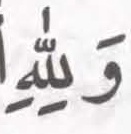 وَ لِلّٰهِ